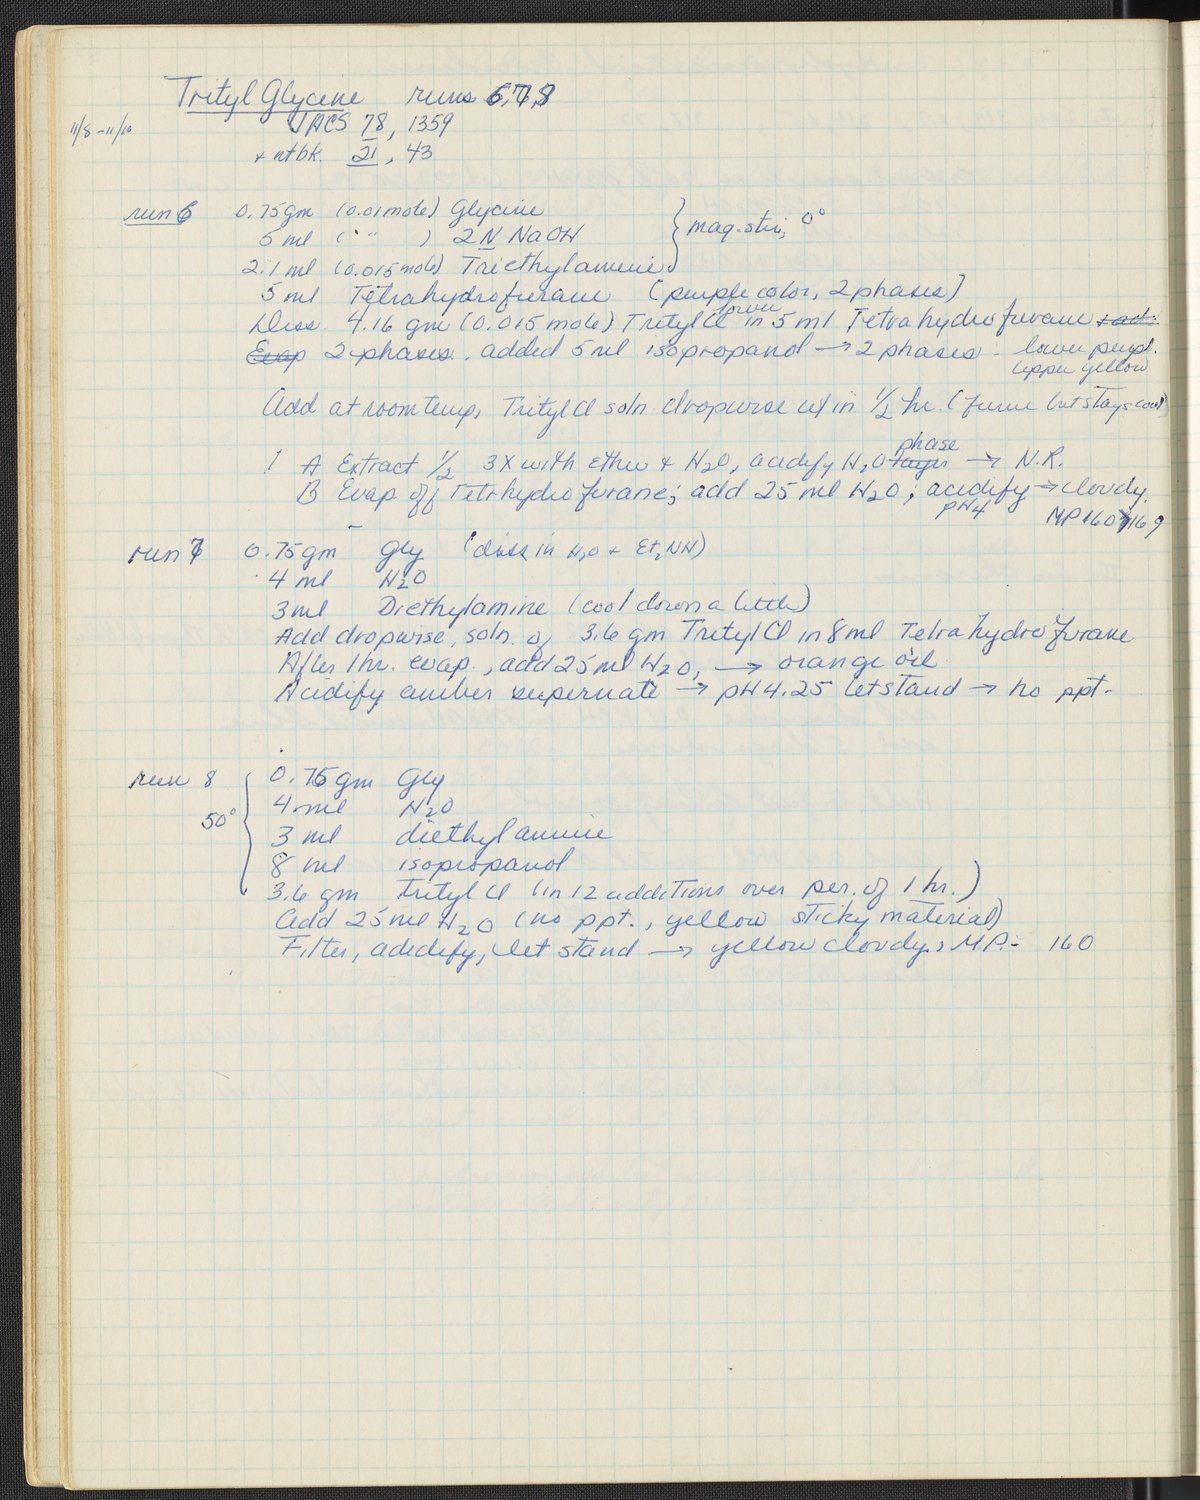 Trityl Glycine runs 6,7,8
11/8-11/10
JACS 78, 1359
+ ntbk. 21, 43
run 6 0.75gm (0.01mole) Glycine
5 ml ( " " ) 2N NaOH } mag. stir, 0°
2.1 ml (0.015 mole) Triethylamine
5 ml Tetrahydrofurane (purple color, 2 phases)
lower
Diss. 4.16 gm (0.015 mole) Trityl Cl in 5 ml Tetrahydrofurane
Evap 2 phases. added 5 ml isopropanol → 2 phases - lower purpl.
upper yellow
Add at room temp, Trityl Cl soln dropwise w/in 1/2 hr. (fume but stays cool)
phase
1 A Extract 1/2 3X with ether + H2O, acidify H2O layer → N.R.
B Evap off Tetrhydrofurane; add 25 ml H2O; acidify → cloudy.
pH4 MP 160-169
run 7 0.75gm Gly (diss in H2O + Et2NH)
4 ml H2O
3ml Diethylamine (cool down a little)
Add dropwise soln. of 3.6 gm Trityl Cl in 8ml Tetrahydrofurane
After 1hr. evap., add 25 ml H2O, → orange oil
Acidify amber supernate → pH 4.25 let stand → no ppt.
run 8 0.75 gm Gly
4 ml H2O
50°
3 ml diethylamine
8 ml isopropanol
3.6 gm Trityl Cl (in 12 additions over per. of 1 hr.)
Add 25 ml H2O (no ppt., yellow sticky material)
Filter, acidify, let stand → yellow cloudy, M.P. = 160